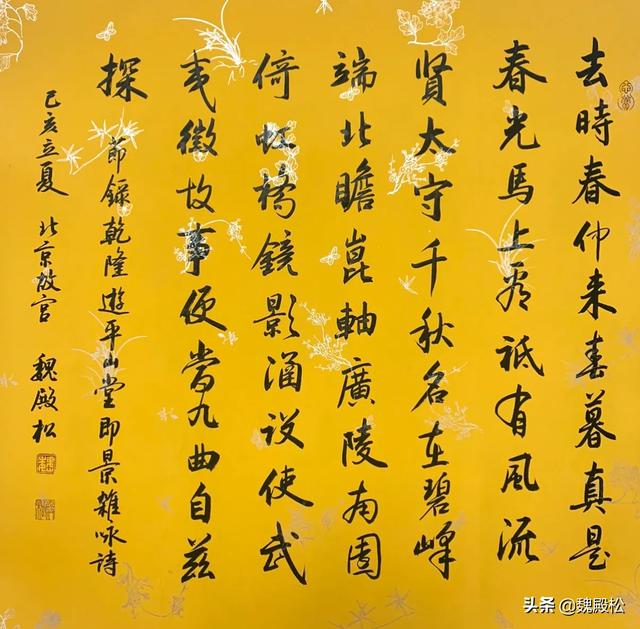 去時春仲来春暮真是
春光馬上看祗有風流
賢太守千秋名在碧峰
端北瞻崑軸廣陵南園
倚虹橋鏡影涵设使武
夷徵故事便當九曲自兹
探
節錄乾隆遊平山堂即景雜咏詩
己亥立夏 北京故宫 魏殿松
头条 @魏殿松